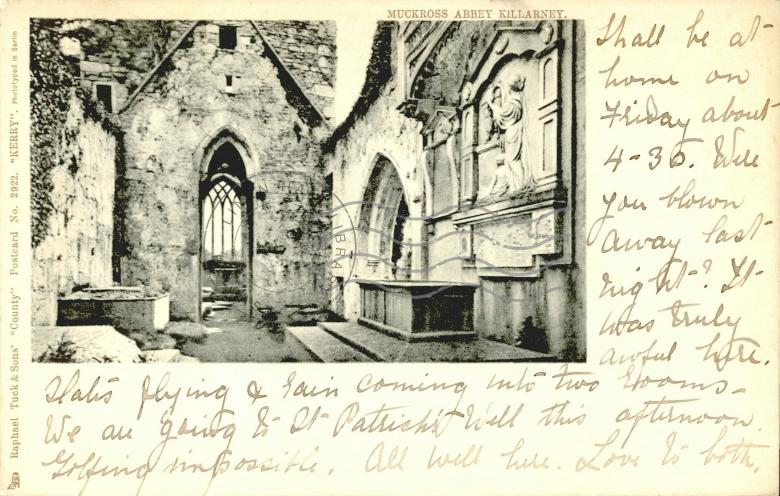 MUCKROSS ABBEY KILLARNEY.
Shall be at
home on
Friday about
4-30. Were
you blown
away last
night? It
was truly
awful here.
Slats flying & rain coming into two rooms-
We are going to St Patrick's Well this afternoon.
Golfing impossible. All well here. Love to both.
Raphael Tuck & Sons' "County" Postcard No. 2922. "KERRY". Phototyped in Berlin